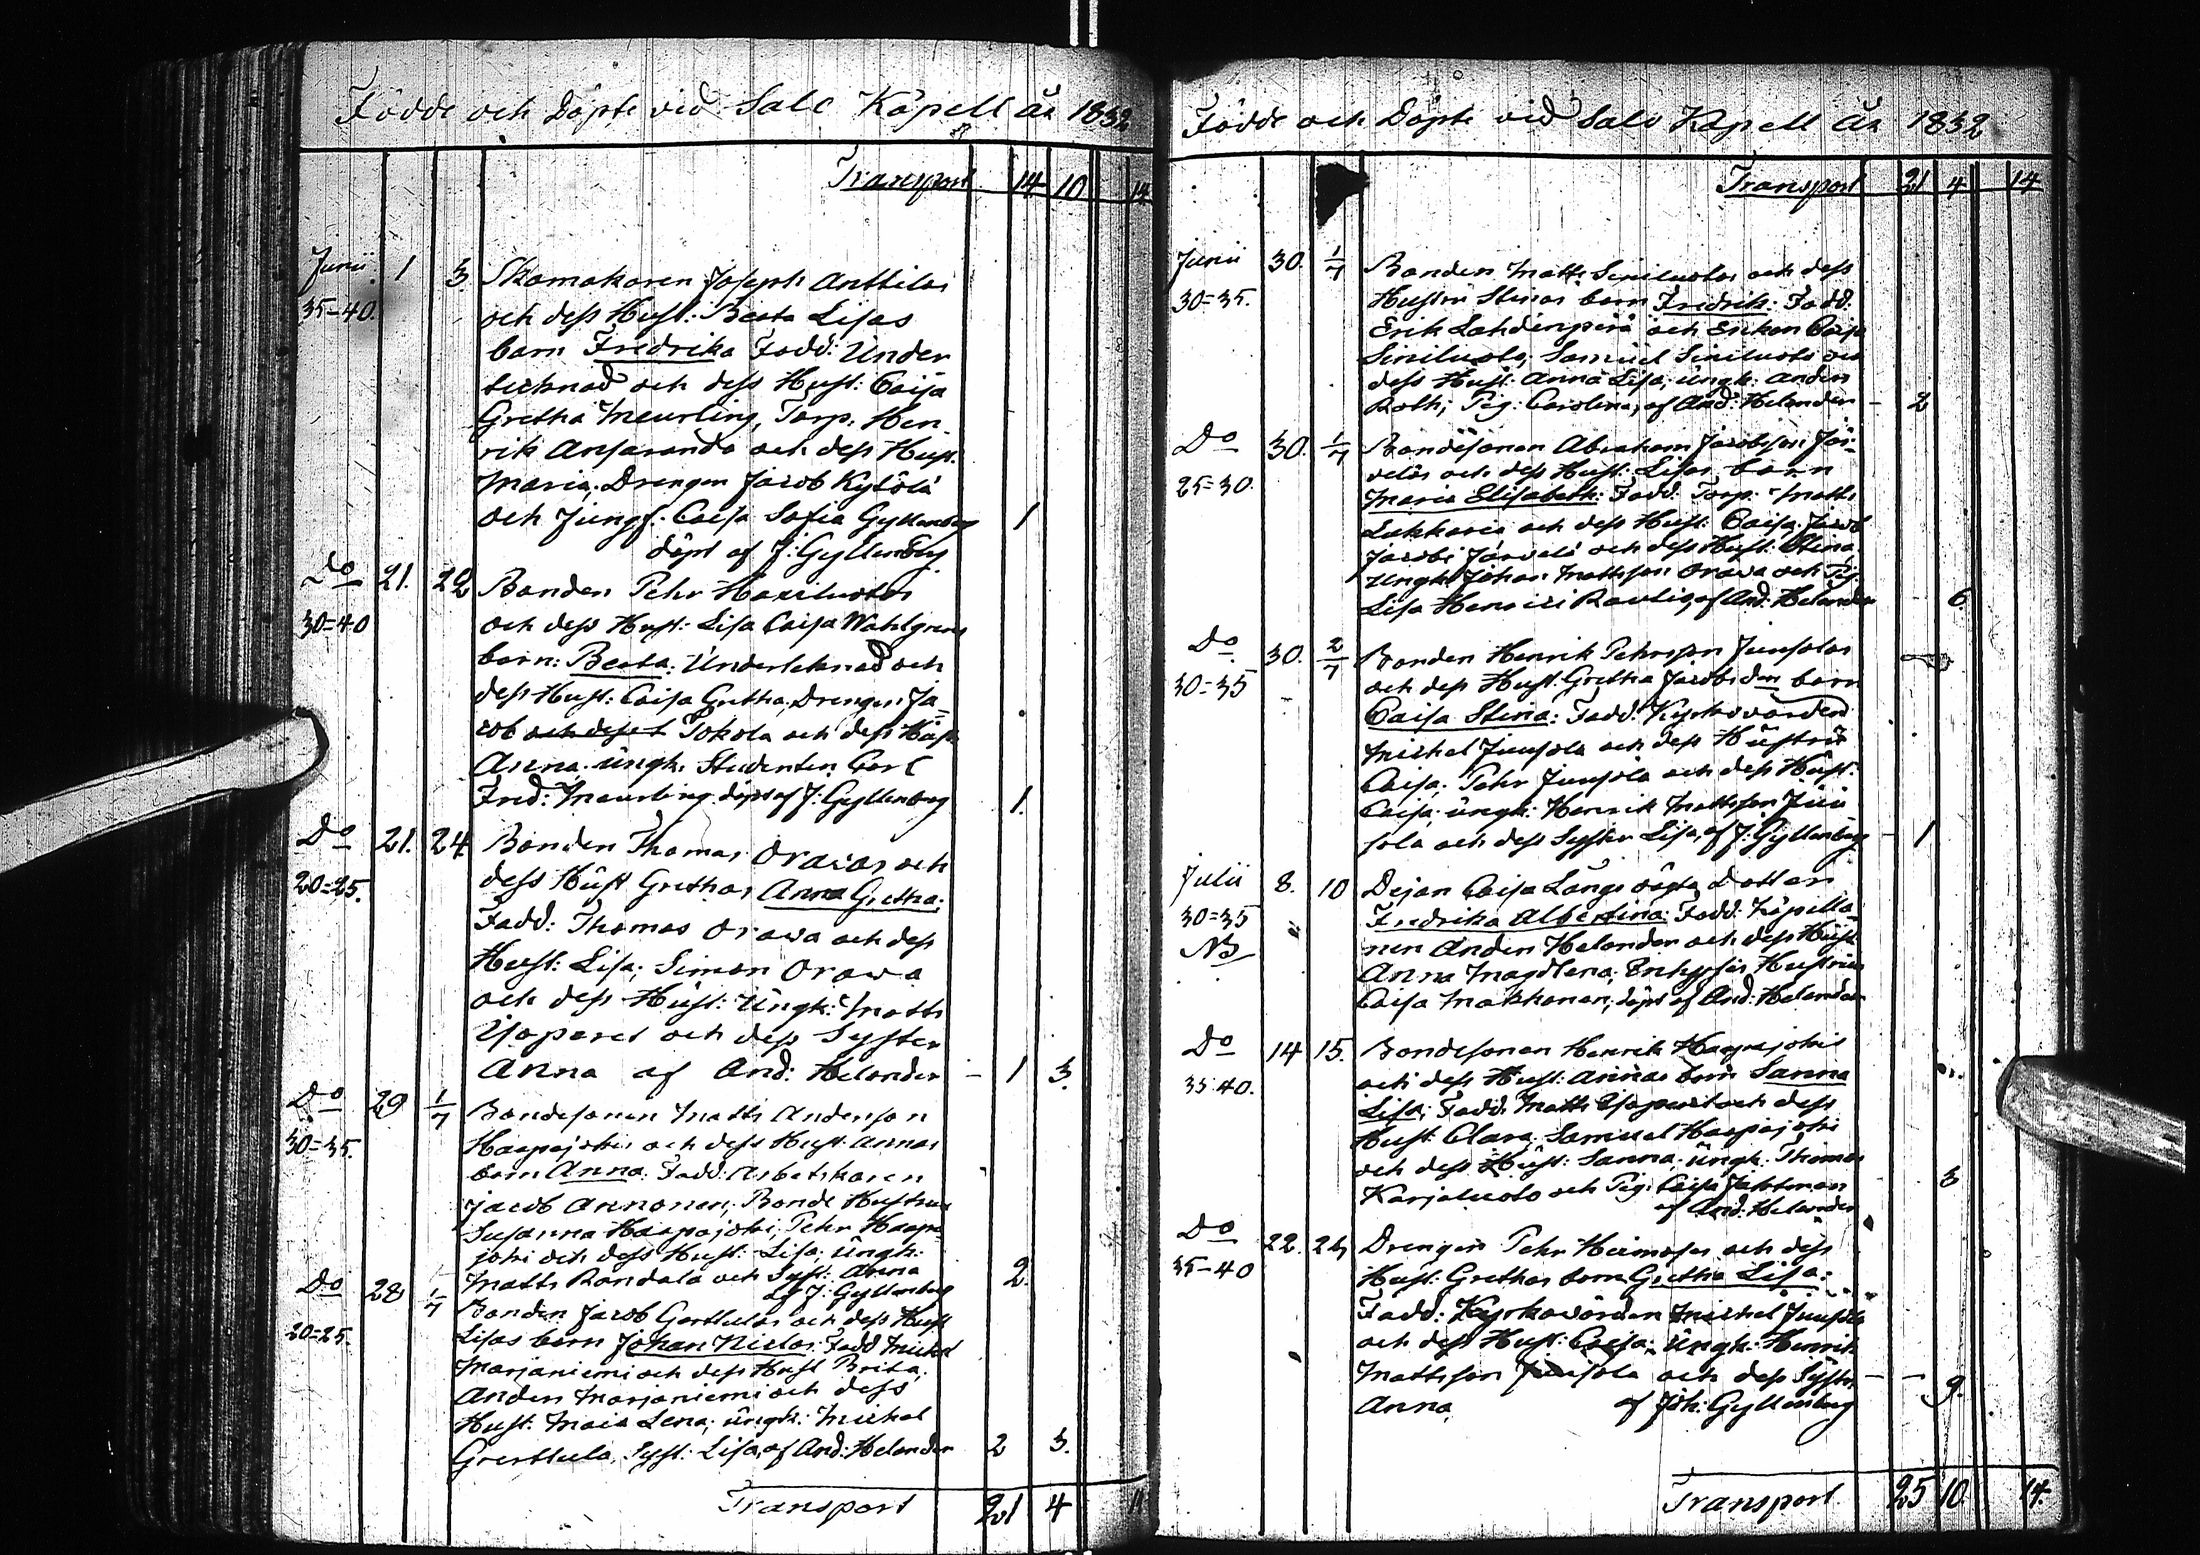 Födde och Döpte vid Salo Kapell År 1832
Transport 14 10 14
Junii 1 3. Skomakaren Joseph Anttilas
35-40. och dess Hust: Beata Lisas
barn Fredrika Fadd: Under
tecknad och dess Hust: Caisa
Gretha Meurling, Torp. Hen
rik Ansaranda och dess Hust.
Maria; Drengen Jacob Kylölä
och Jungf: Caisa Sofia Gyllenberg 1
döpt af J: Gyllenberg
Do 21. 22 Bonden Pehr Harilustos
30=40 och dess Hust: Lisa Caisa Wahlgrens
barn: Beata: Undertecknad och
dess Hust: Caisa Gretha; Drengen Ja
cob och dess t Pokola och dess Hust
Anna ungk. Studenten Carl
Fred: Meurling döpt af J: Gyllenberg 1.
Do 21. 24 Bonden Thomas Oravas och
20=25. dess Hust Grethas Anna Gretha;
Fadd: Thomas Orawa och dess
Hust: Lisa; Simon Orawa
och dess Hust: Ungk: Matts
Ylaparet och dess Syster
Anna af And: Helander - 1 3.
Do 29 1/7 Bondesonen Matts Anderson
30=35. Haapajokis och dess Hust Annas
barn Anna. Fadd: Arbetskaren
Jacob Annonen, Bonde Hustrun
Susanna Haapajoki; Pehr Haapa
joki och dess Hust: Lisa; Ungk:
Matts Randala och Syst: Anna 2.
af J: Gyllenberg
Do 28 1/7 Bonden Jacob Gertulas och dess Hust
20=25. Lisas barn Johan Niclas: Fadd Michel
Marjaniemi och dess Hust Brita,
Anders Marjaniemi och dess
Hust: Maia Lena; ungk: Michel
Grertula, Syst: Lisa, af And: Helander 2 3.
Transport 21 4
Födde och Döpte vid Salo Kapell År 1832
Transport 21 4 14
Junii 30. 1/7 Bonden Matts Siniluotos och dess
30=35. Hustru Stinas barn Fredrik: Fadd:
Erik Lahdenperä och Enkan Caisa
Siniluoto, Samuel Siniluoto och
dess Hust: Anna Lisa; ungk: Anders
Roth; Pig: Carolina, af And: Helander - 2
Do 30. 1/7 Bondesonen Abraham Jacobsson Jär-
25=30. veläs och dess Hust: Lisas barn
Maria Elisabeth: Fadd: Torp: Matts
Lukkaria och dess Hust: Caisa; Jacob
Jacobi Järvelä och dess Hust: Stina
Ungk: Johan Mattsson Orava och Pig:
Lisa Henrici Rautio, af And: Helander 6.
Do 30. 2/7 Bonden Henrik Pehrsson Junsolas
30=35 och dess Hust: Gretha Jacobsdon barn
Caisa Stina: Fadd: Kyrkovärden
Michel Junsola och dess Hustru
Caisa; Pehr Junsola och dess Hust:
Caisa; ungk: Henrik Mattsson Jun
sola och dess Syster Lisa, af J: Gyllenberg - 1
Julii 8. 10 Dejan Caisa Långs oägta Dotter
30=35 Fredrika Albertina: Fadd: Capella-
NB nen Anders Helander och dess Hust
Anna Magdlena; Hustrun
Caisa Makkonen; döpt af And: Helander
Do 14 15. Bondesonen Henrik Haapajokis
35:40. och dess Hust: Annas barn Sanna
Lisa; Fadd: Matts och dess
Hust: Clara, Samuel Haapajoki
och dess Hust: Sanna; ungk: Thomas
Karjaluoto och Pig: Caisa 3
af And: Helander
Do 22. 24 Drengen Pehr Heimosas och dess
35-40 Hust: Grethas barn Gretha Lisa:
Fadd: Kyrkovärden Michel Junsola
och dess Hust: Caisa; Ungk: Henrik
Mattsson Junsola och dess Syster - - 9.
Anna, af Joh: Gyllenberg
Transport 25 10. 14.